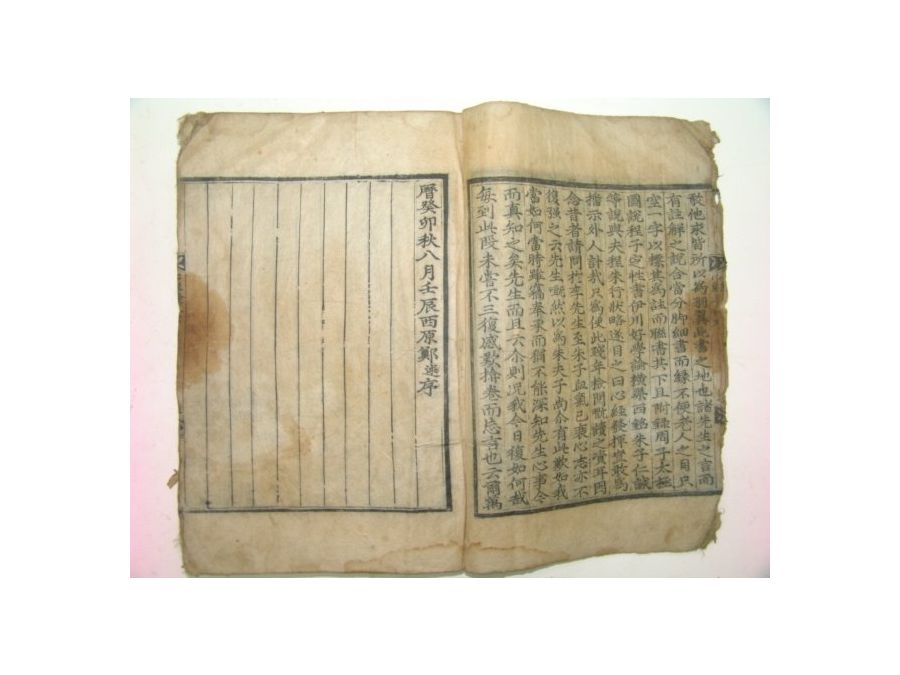 敢他求皆所以爲羽翼此書之地也諸先生之言而
有註解之說合當分脚細書而緣不便老人之目只
空一字以標其爲註而聯書其下且附錄周子太極
圖說程子定性書伊川好學論橫渠西銘朱子仁說
等說與夫程朱行狀略遂目之曰心經發揮豈敢爲
指示外人計哉只爲便此殘年檢閱玩讀之資耳因
念昔者請問於李先生至朱子血氣已衰心志亦不
復强之云先生喟然以爲朱夫子尙亦有此歎如我
當如何當時雖竊奉承而猶不能深知先生心事今
而眞知之矣先生而且云介則况我今日復如何哉
每到此段未嘗不三復感歎掩卷而忘言也云爾萬
曆癸卯秋八月壬辰西原鄭逑序